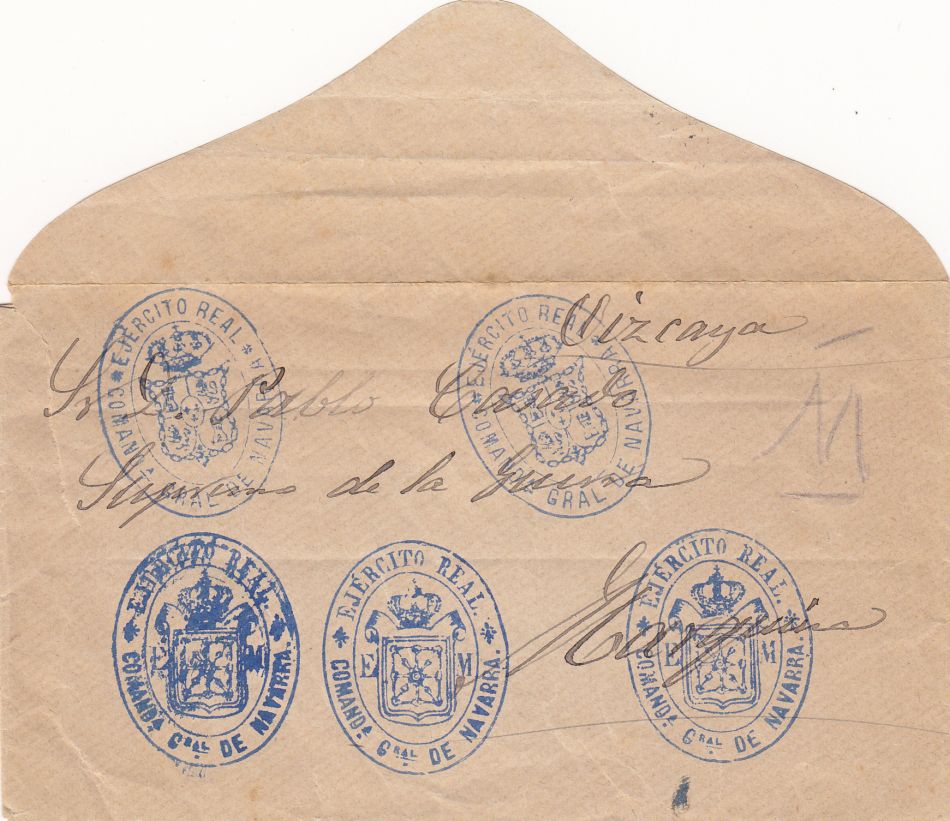 Vizcaya
Sr. D. Pablo Casado
Supremo de la Guerra
Marquina
11
* EJÉRCITO REAL * COMANDª GRAL DE NAVARRA
* EJÉRCITO REAL * COMANDª GRAL DE NAVARRA
* EJÉRCITO REAL. * COMANDª GRAL DE NAVARRA.
E M
* EJÉRCITO REAL. * COMANDª GRAL DE NAVARRA.
E M
* EJÉRCITO REAL. * COMANDª GRAL DE NAVARRA.
E M